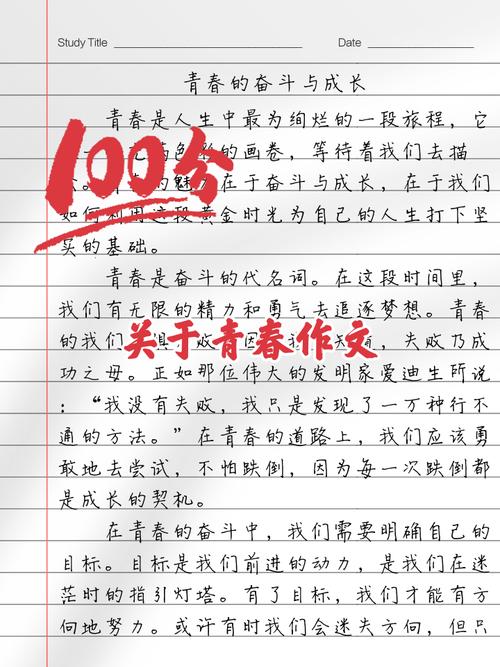 Study Title
Date
青春的奋斗与成长
青春是人生中最为绚烂的一段旅程，它
100分
一 满色彩的画卷，等待着我们去描
。青春的魅力在于奋斗与成长，在于我们
如何利用这段黄金时光为自己的人生打下坚
实的基础。
青春是奋斗的代名词。在这段时间里，
我们有无限的精力和勇气去追逐梦想。青春
的我们 惧失败 因 知道，失败乃成
关于青春作文
功之母。正如那位伟大的发明家爱迪生所说
：“我没有失败，我只是发现了一万种行不
通的方法。”在青春的道路上，我们应该勇
敢地去尝试，不怕跌倒，因为每一次跌倒都
是成长的契机。
在青春的奋斗中，我们需要明确自己的
目标。目标是我们前进的动力，是我们在迷
茫时的指引灯塔。有了目标，我们才能有方
向地努力。或许有时我们会迷失方向，但只